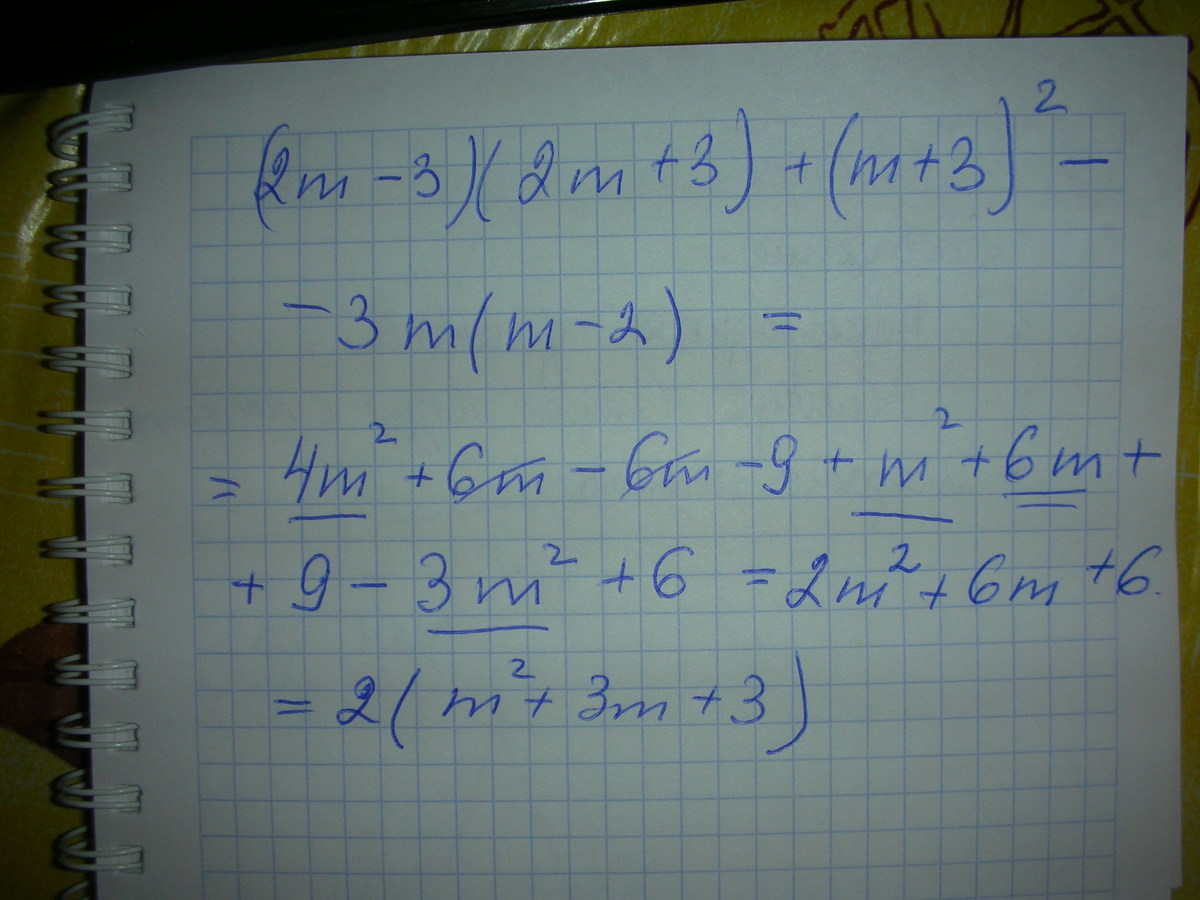 (2m - 3)(2m + 3) + (m + 3)² -
- 3m(m - 2) =
= 4m² + 6m - 6m - 9 + m² + 6m +
+ 9 - 3m² + 6 = 2m² + 6m + 6.
= 2(m² + 3m + 3)